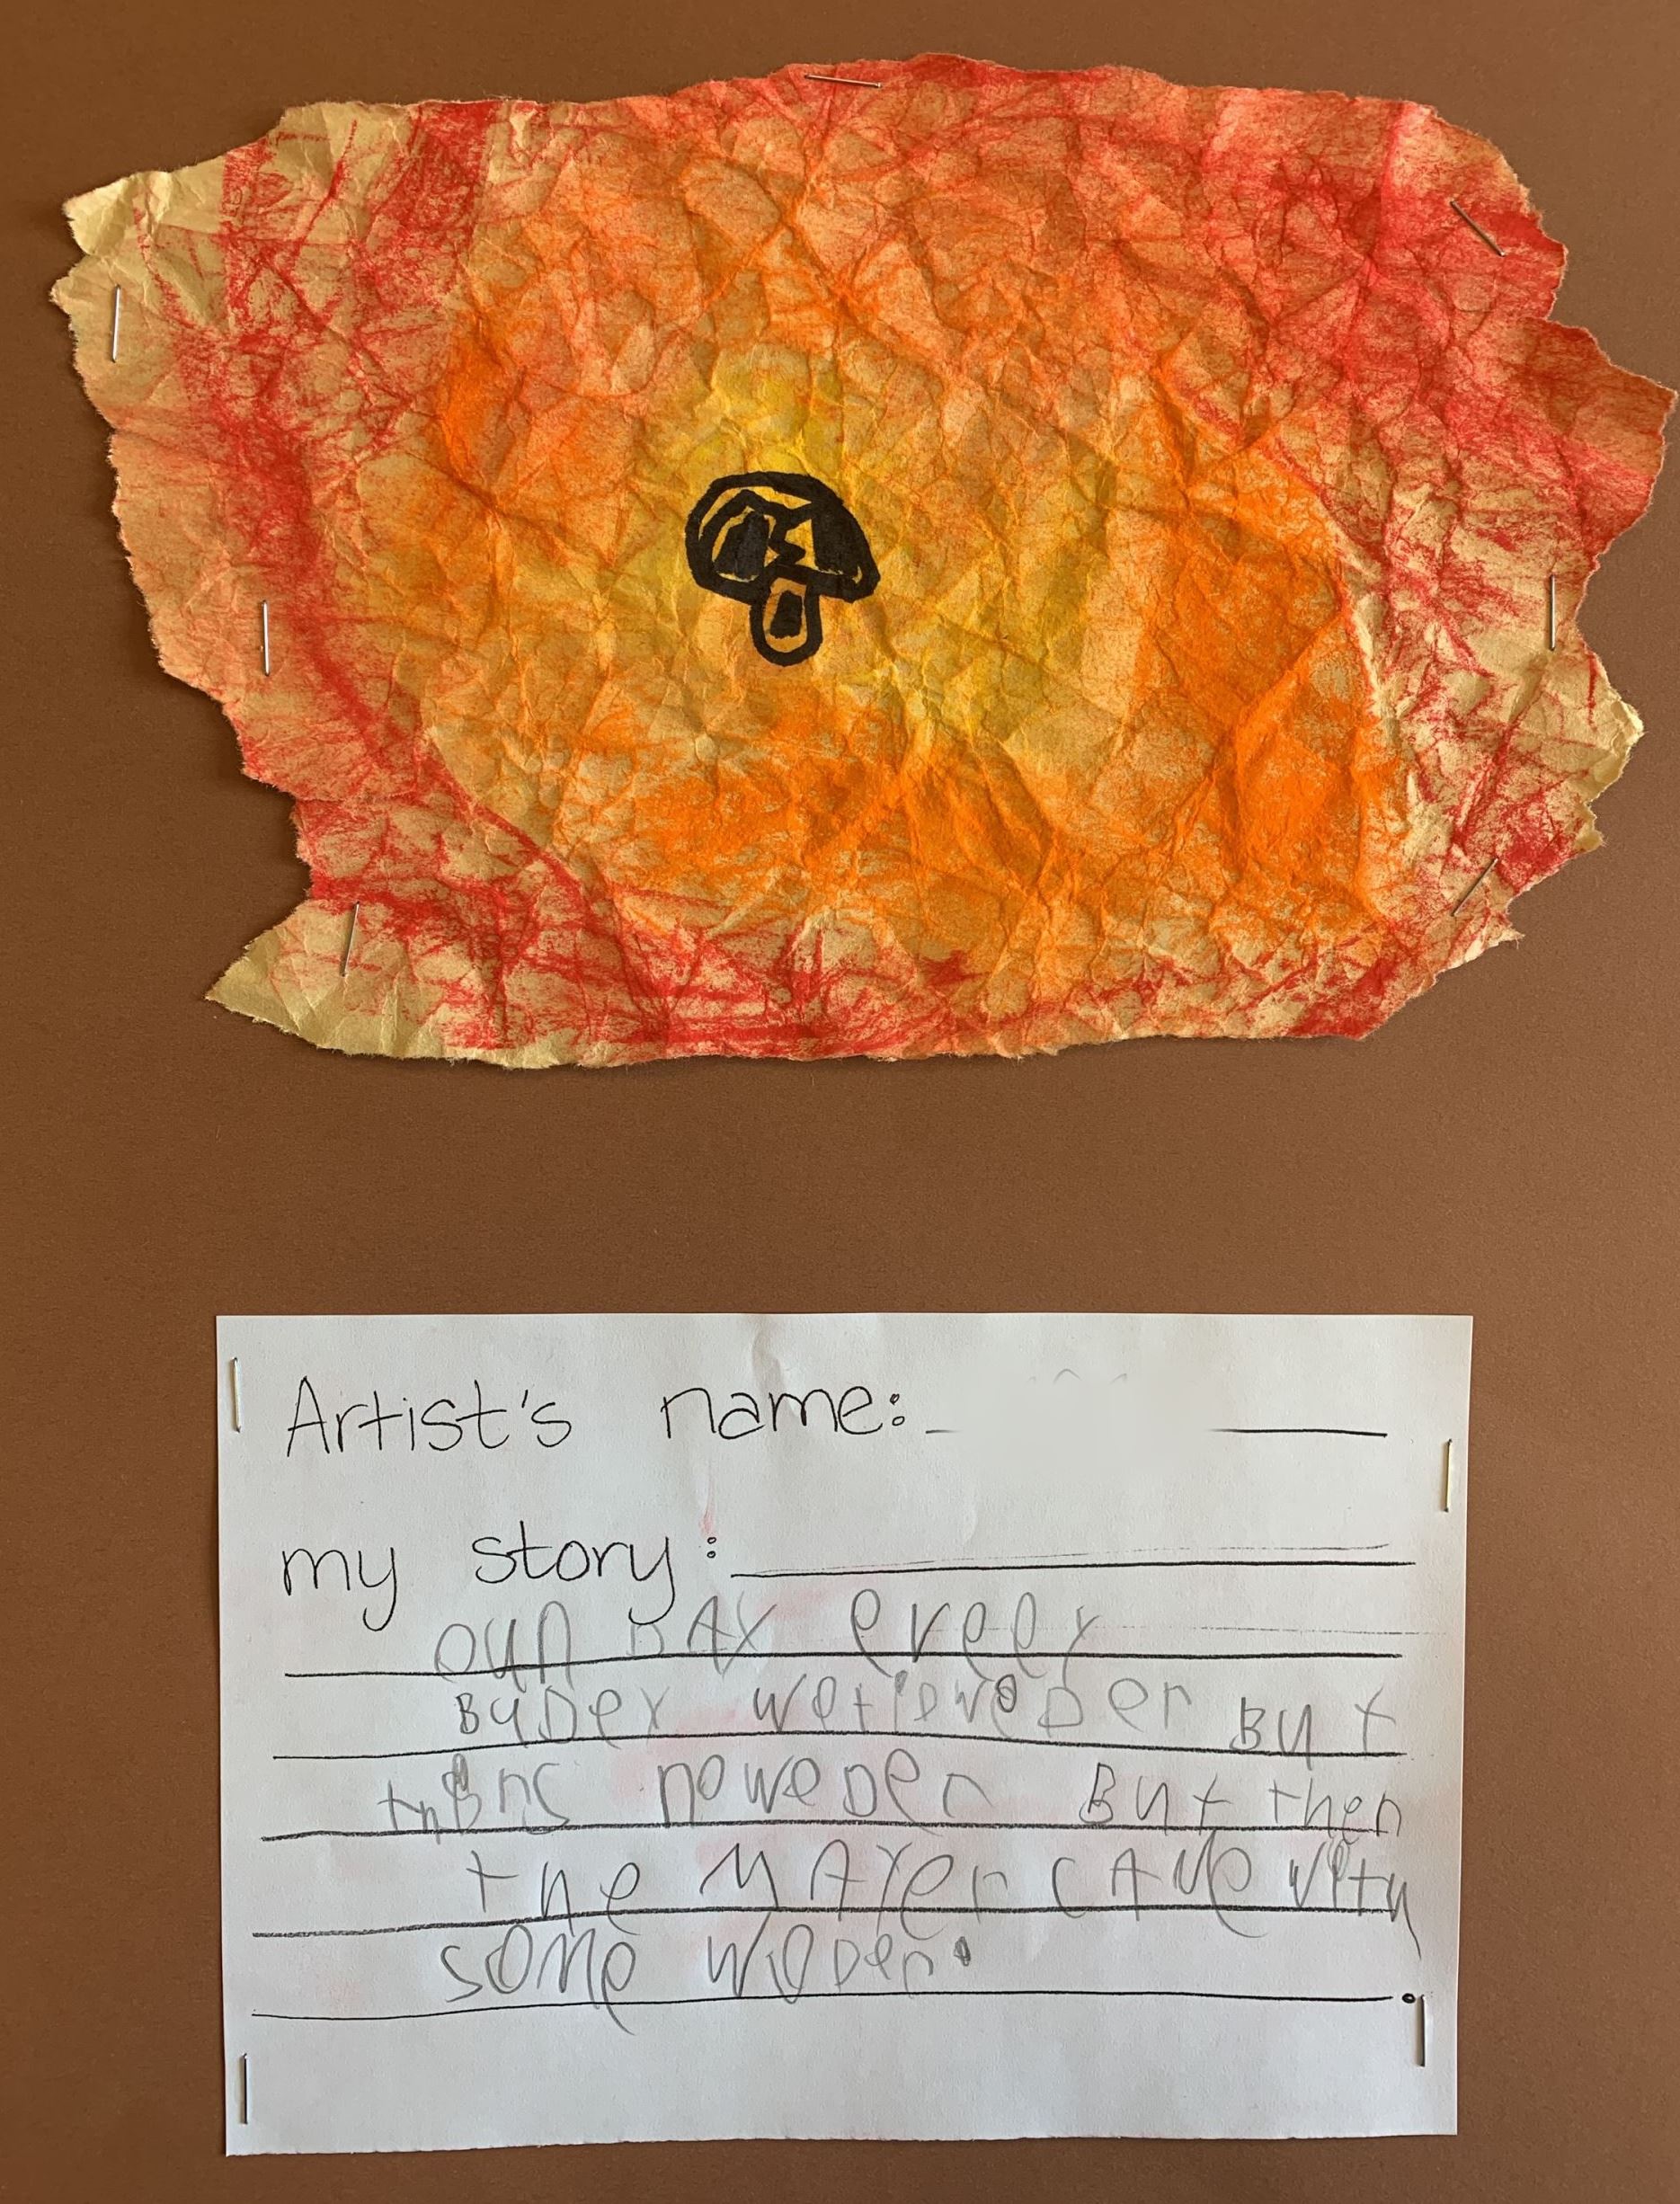 Artist's name:
my story:
oun DAY eveey
BuDey wetieveDer But
thBns noweDer But then
the MAYer CAMe With
some woDer.